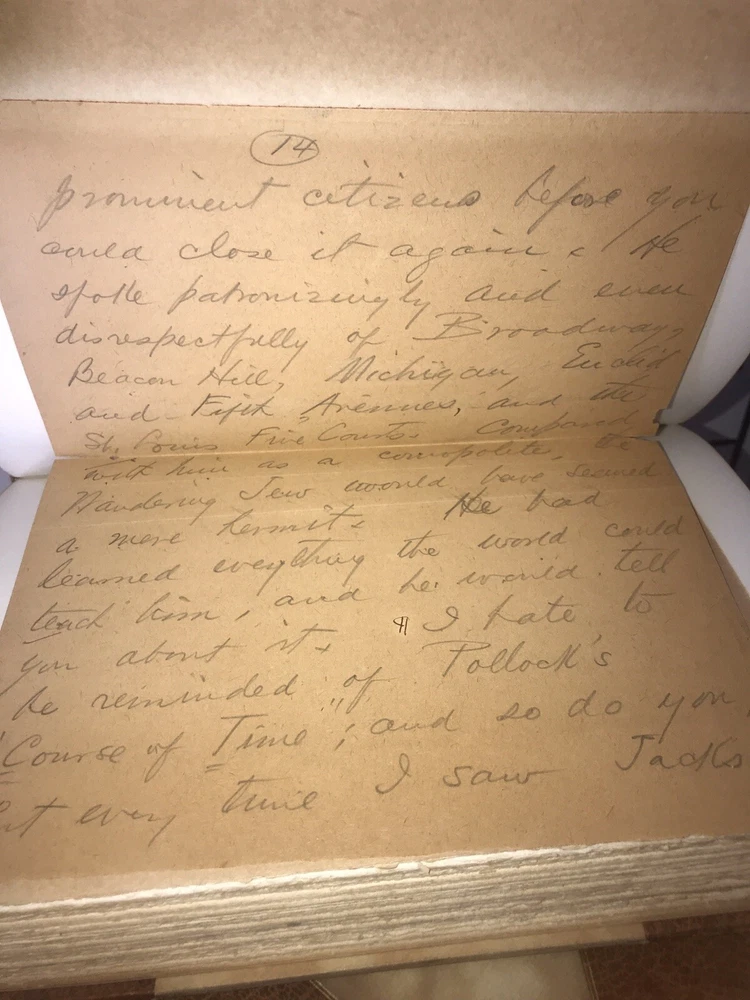 14
prominent citizens before you
could close it again. He
spoke patronizingly and even
disrespectfully of Broadway,
Beacon Hill, Michigan, Euclid
and Fifth Avenues, and the
St. Louis Five Courts. Compared
with him as a cosmopolite, the
Wandering Jew would have seemed
a mere hermit. He had
learned everything the world could
teach him, and he would tell
you about it. ¶ I hate to
be reminded of Pollock's
"Course of Time"; and so do you;
but every time I saw Jacks